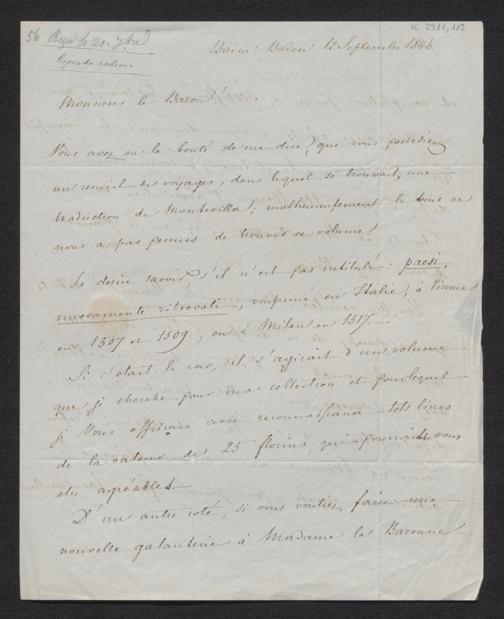 56 Reçu le 20. 7bre
K 2911, 1/2
Répondu
Baden Baden 12 Septembre 1846.
Monsieur le Baron!
Vous avez eu la bonté de me dire, que vous possediez
un recueil des voyages, dans lequel se trouvait une
traduction de Montevilla; malheureusement le tems ne
nous a pas permis de trouver ce volume.
Je desire savoir, s'il n'est pas intitulé: paesi
nuovamente ritrovati, imprimé en Italie, à Vicence
en 1507 et 1509, ou à Milan en 1517.
Si c'était le cas, il s'agirait d'un volume
que je cherche pour ma collection et pour lequel
je Vous offrirais avec reconnaissance tels livres
de la valeur de 25 florins, qui pourraient vous
etre agréables.
D'un autre coté, si vous vouliez faire une
nouvelle galanterie à Madame la Baronne